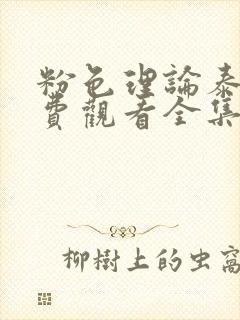 粉色理論泰
費觀看全集
柳樹上的虫窩